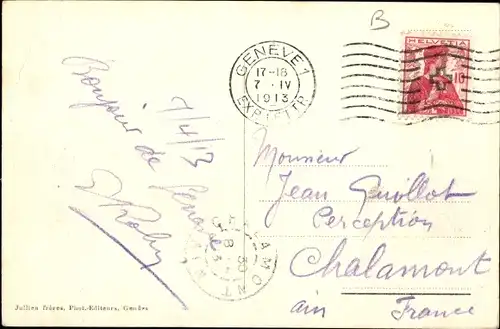 B
GENÈVE 1
17-18
7 . IV
1913
EXP. LETTR
HELVETIA
10
7/4/13
Bonjour de
Genève
CHALAMONT
8
Monsieur
Jean Guillot
Perception
Chalamont
ain France
Jullien frères, Phot.-Editeurs, Genève